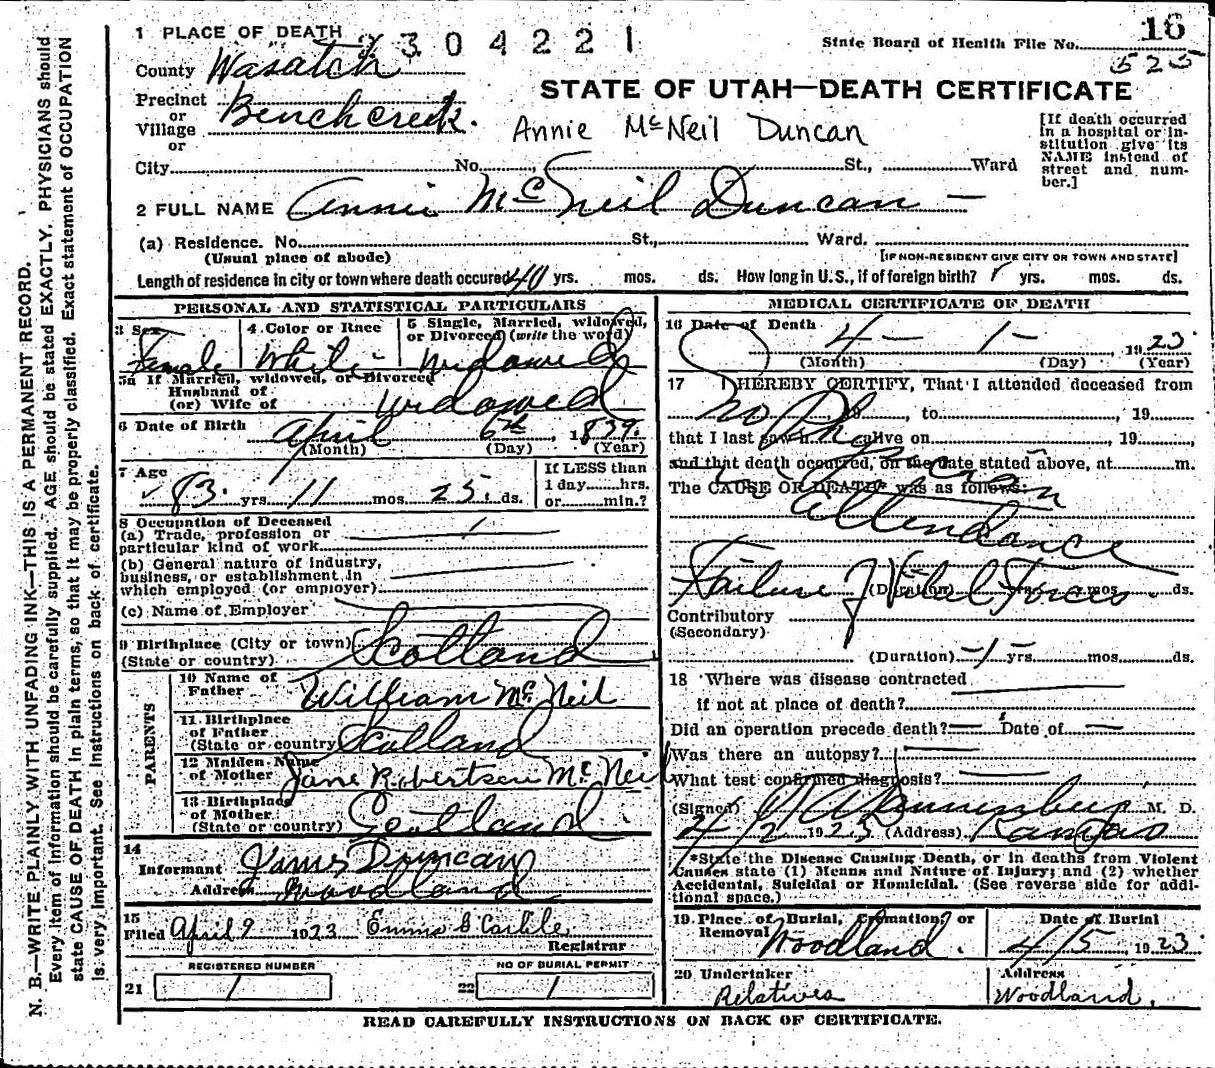 1 PLACE OF DEATH 2304221
State Board of Health File No. 16
525
County Wasatch
STATE OF UTAH—DEATH CERTIFICATE
Precinct or Village Benchcreek.
Annie McNeil Duncan
[If death occurred in a hospital or institution give its NAME instead of street and number.]
or
City No. St., Ward
2 FULL NAME Annie McNeil Duncan —
(a) Residence. No. St., Ward.
(Usual place of abode) [IF NON-RESIDENT GIVE CITY OR TOWN AND STATE]
Length of residence in city or town where death occured 40 yrs. mos. ds. How long in U.S., if of foreign birth? yrs. mos. ds.
PERSONAL AND STATISTICAL PARTICULARS
3 Sex Female
4 Color or Race White
5 Single, Married, widowed, or Divorced (write the word) Widowed
5a If Married, widowed, or Divorced
Husband of
(or) Wife of Widowed
6 Date of Birth April 6th, 1839.
(Month) (Day) (Year)
7 Age 83 yrs. 11 mos. 25 ds.
If LESS than 1 day hrs. or min.?
8 Occupation of Deceased
(a) Trade, profession or particular kind of work
(b) General nature of industry, business, or establishment in which employed (or employer)
(c) Name of Employer
9 Birthplace (City or town)
(State or country) Scotland
PARENTS
10 Name of Father William McNeil
11 Birthplace of Father (State or country) Scotland
12 Maiden Name of Mother Jane Robertson McNeil
13 Birthplace of Mother (State or country) Scotland
14
Informant James Duncan
Address Woodland
15
Filed April 9 1923 Emma C Carlile
Registrar
REGISTERED NUMBER
21
NO OF BURIAL PERMIT
22
MEDICAL CERTIFICATE OF DEATH
16 Date of Death 4 — 1 — 1923
(Month) (Day) (Year)
17 I HEREBY CERTIFY, That I attended deceased from
No , to , 19
that I last saw h alive on , 19
and that death occurred, on the date stated above, at m.
The CAUSE OF DEATH* was as follows:
Physician in
Attendance
Failure of Vital Forces
(Duration) yrs. mos. ds.
Contributory
(Secondary)
(Duration) yrs. mos. ds.
18 Where was disease contracted
if not at place of death?
Did an operation precede death? Date of
Was there an autopsy?
What test confirmed diagnosis?
(Signed) M. D.
4/2 1923 (Address) Kamas
*State the Disease Causing Death, or in deaths from Violent Causes state (1) Means and Nature of Injury; and (2) whether Accidental, Suicidal or Homicidal. (See reverse side for additional space.)
19 Place of Burial, Cremation, or Removal Woodland.
Date of Burial 4/5 1923
20 Undertaker Relatives
Address Woodland.
READ CAREFULLY INSTRUCTIONS ON BACK OF CERTIFICATE.
N. B.—WRITE PLAINLY WITH UNFADING INK—THIS IS A PERMANENT RECORD.
Every item of information should be carefully supplied. AGE should be stated EXACTLY. PHYSICIANS should
state CAUSE OF DEATH in plain terms, so that it may be properly classified. Exact statement of OCCUPATION
is very important. See instructions on back of certificate.